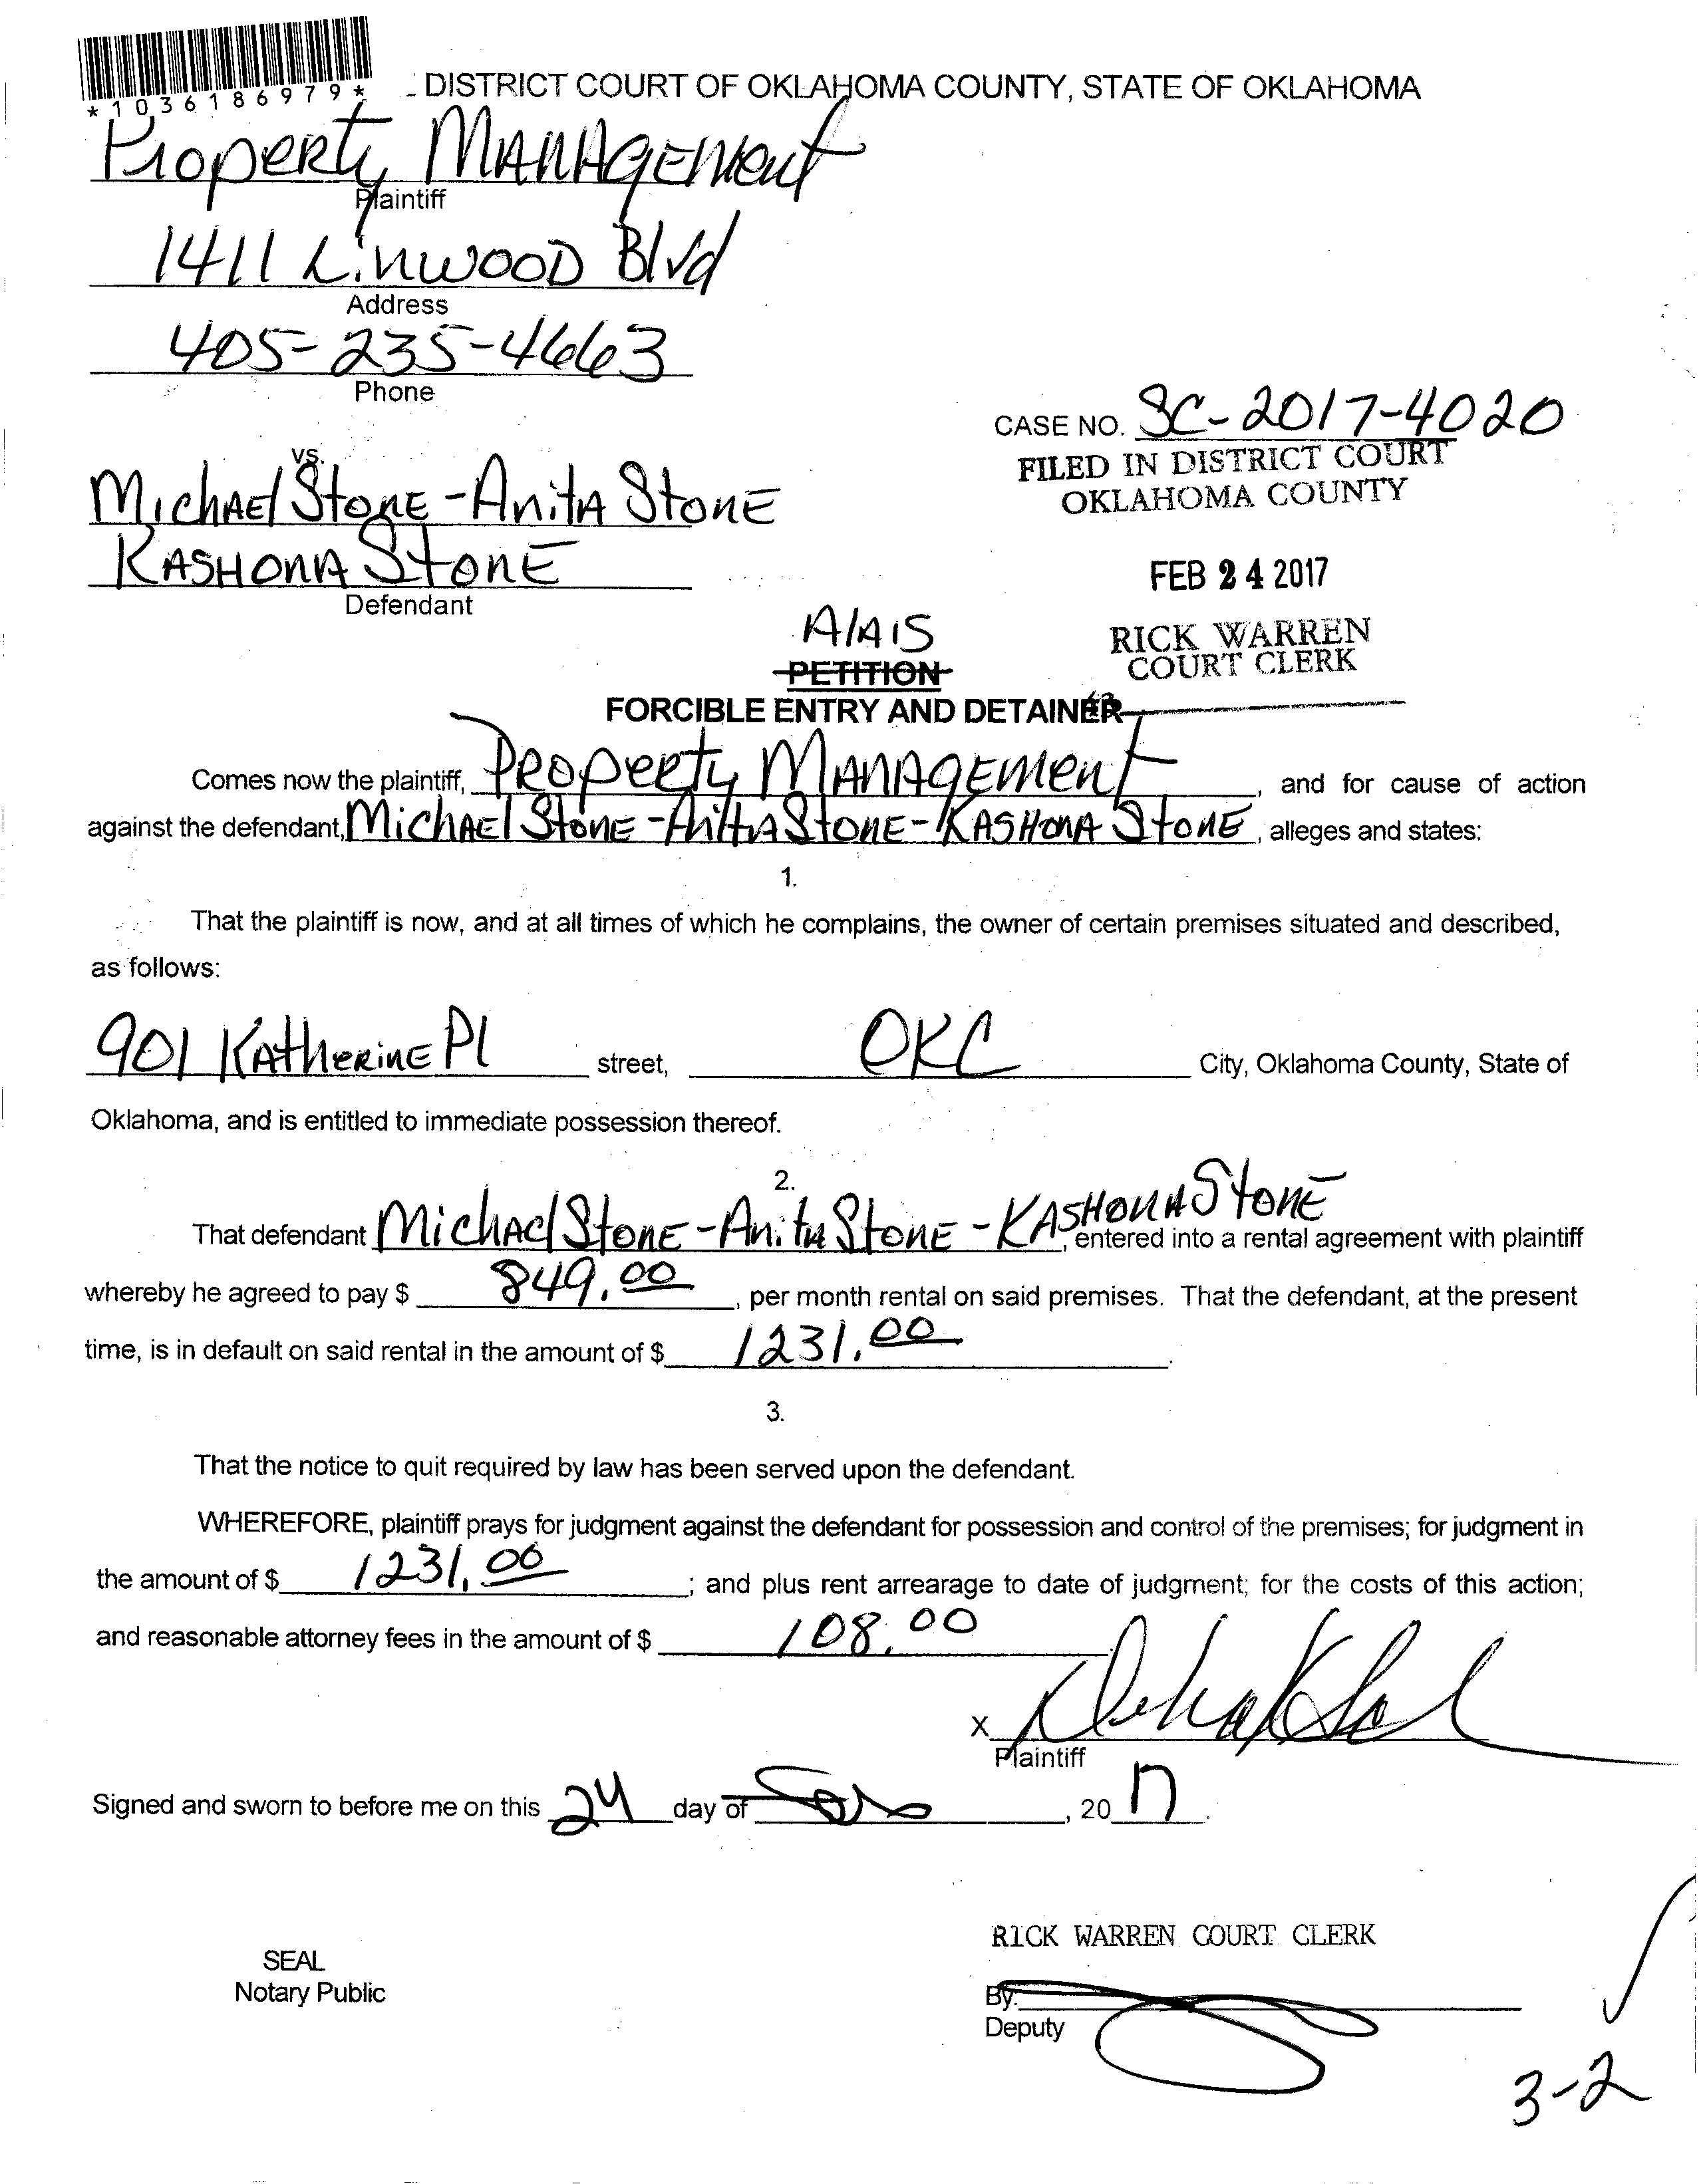 *1036186979*
DISTRICT COURT OF OKLAHOMA COUNTY, STATE OF OKLAHOMA
Property Management
Plaintiff
1411 Linwood Blvd
Address
405-235-4663
Phone
CASE NO. SC-2017-4020
FILED IN DISTRICT COURT
OKLAHOMA COUNTY
vs.
Michael Stone - Anita Stone
Kashona Stone
Defendant
FEB 24 2017
RICK WARREN
COURT CLERK
AlAIS
PETITION
FORCIBLE ENTRY AND DETAINER
Comes now the plaintiff, Property Management, and for cause of action
against the defendant, Michael Stone - Anita Stone - Kashona Stone, alleges and states:
1.
That the plaintiff is now, and at all times of which he complains, the owner of certain premises situated and described,
as follows:
901 Katherine Pl street, OKC City, Oklahoma County, State of
Oklahoma, and is entitled to immediate possession thereof.
2.
That defendant Michael Stone - Anita Stone - Kashona Stone, entered into a rental agreement with plaintiff
whereby he agreed to pay $ 849.00, per month rental on said premises. That the defendant, at the present
time, is in default on said rental in the amount of $ 1231.00.
3.
That the notice to quit required by law has been served upon the defendant.
WHEREFORE, plaintiff prays for judgment against the defendant for possession and control of the premises; for judgment in
the amount of $ 1231.00; and plus rent arrearage to date of judgment; for the costs of this action;
and reasonable attorney fees in the amount of $ 108.00.
X
Plaintiff
Signed and sworn to before me on this 24 day of , 2017.
RICK WARREN COURT CLERK
SEAL
Notary Public
By:
Deputy
3-2